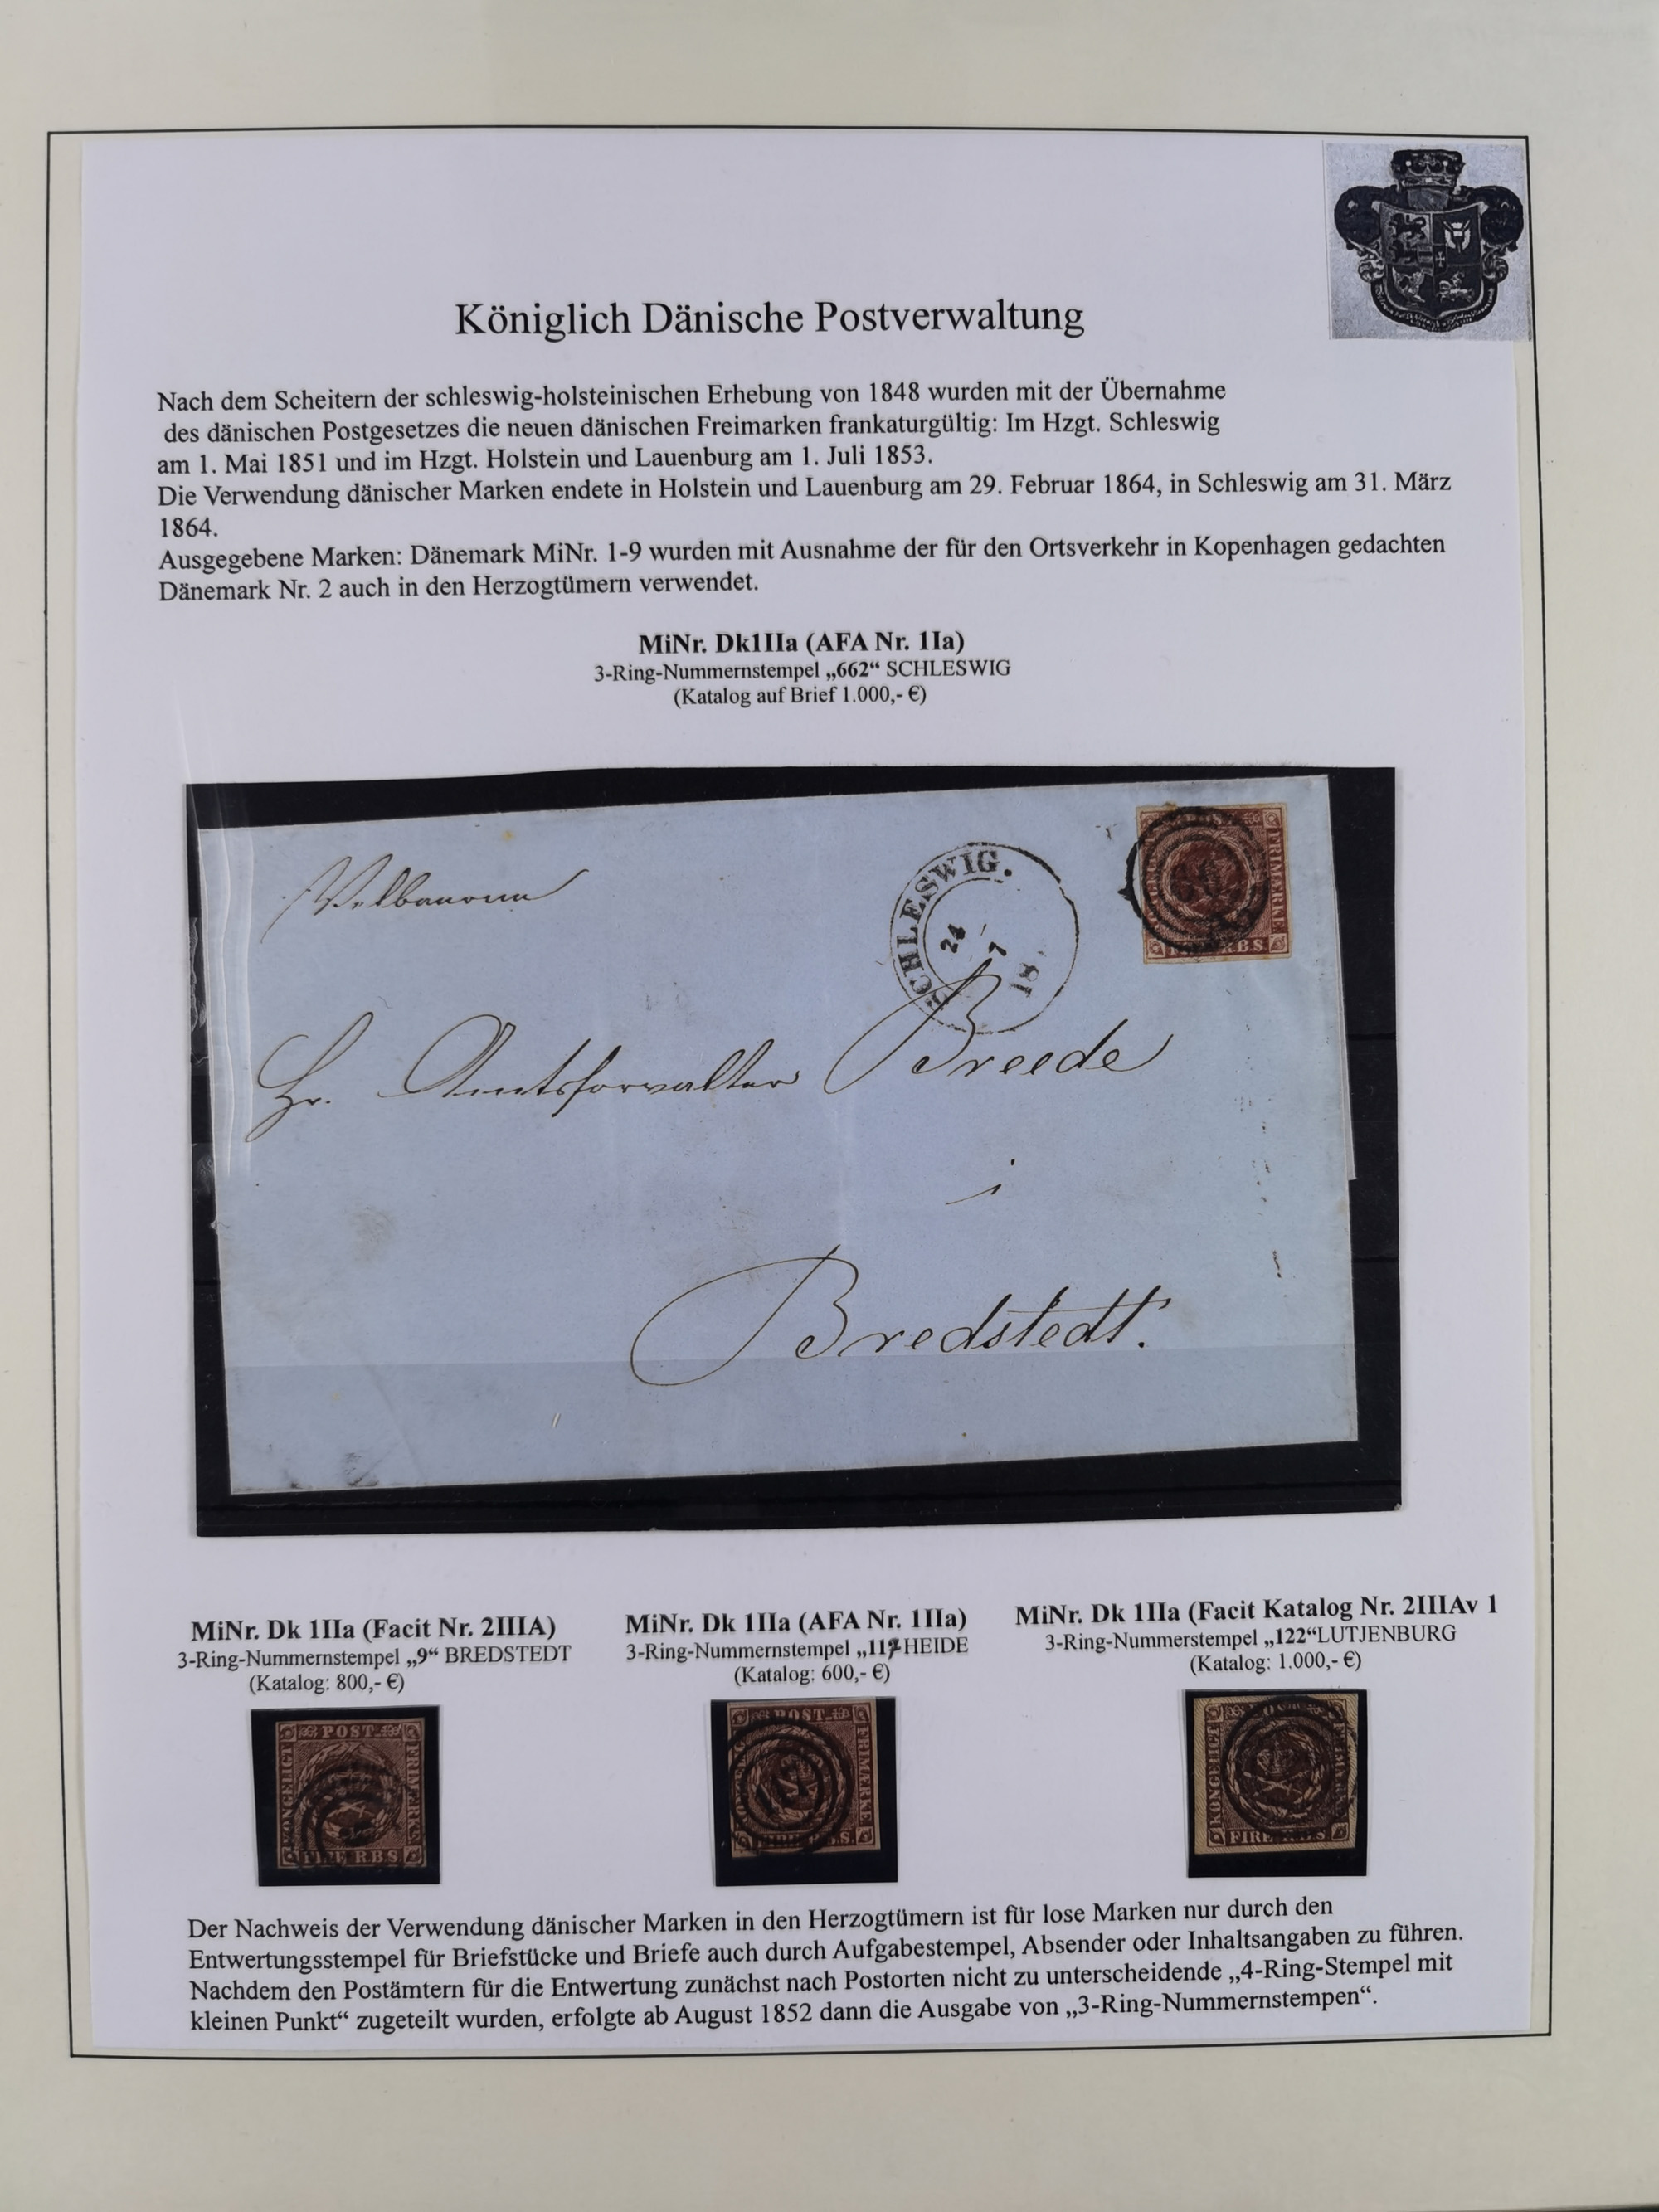 Königlich Dänische Postverwaltung
Nach dem Scheitern der schleswig-holsteinischen Erhebung von 1848 wurden mit der Übernahme
des dänischen Postgesetzes die neuen dänischen Freimarken frankaturgültig: Im Hzgt. Schleswig
am 1. Mai 1851 und im Hzgt. Holstein und Lauenburg am 1. Juli 1853.
Die Verwendung dänischer Marken endete in Holstein und Lauenburg am 29. Februar 1864, in Schleswig am 31. März
1864.
Ausgegebene Marken: Dänemark MiNr. 1-9 wurden mit Ausnahme der für den Ortsverkehr in Kopenhagen gedachten
Dänemark Nr. 2 auch in den Herzogtümern verwendet.
MiNr. Dk1IIa (AFA Nr. 1Ia)
3-Ring-Nummernstempel „662“ SCHLESWIG
(Katalog auf Brief 1.000,- €)
SCHLESWIG.
24
7
18
FRIMÆRKE
R.B.S.
Hr. Amtsforvalter Breede
i
Bredstedt.
MiNr. Dk 1IIa (Facit Nr. 2IIIA)
3-Ring-Nummernstempel „9“ BREDSTEDT
(Katalog: 800,- €)
MiNr. Dk 1IIa (AFA Nr. 1IIa)
3-Ring-Nummernstempel „117 HEIDE
(Katalog: 600,- €)
MiNr. Dk 1IIa (Facit Katalog Nr. 2IIIAv 1
3-Ring-Nummerstempel „122“LUTJENBURG
(Katalog: 1.000,- €)
POST
KONGELIGT
FRIMÆRKE
FIRE R.B.S.
POST
FRIMÆRKE
117
KONGELIGT
FIRE R.B.S
Der Nachweis der Verwendung dänischer Marken in den Herzogtümern ist für lose Marken nur durch den
Entwertungsstempel für Briefstücke und Briefe auch durch Aufgabestempel, Absender oder Inhaltsangaben zu führen.
Nachdem den Postämtern für die Entwertung zunächst nach Postorten nicht zu unterscheidende „4-Ring-Stempel mit
kleinen Punkt“ zugeteilt wurden, erfolgte ab August 1852 dann die Ausgabe von „3-Ring-Nummernstempen“.